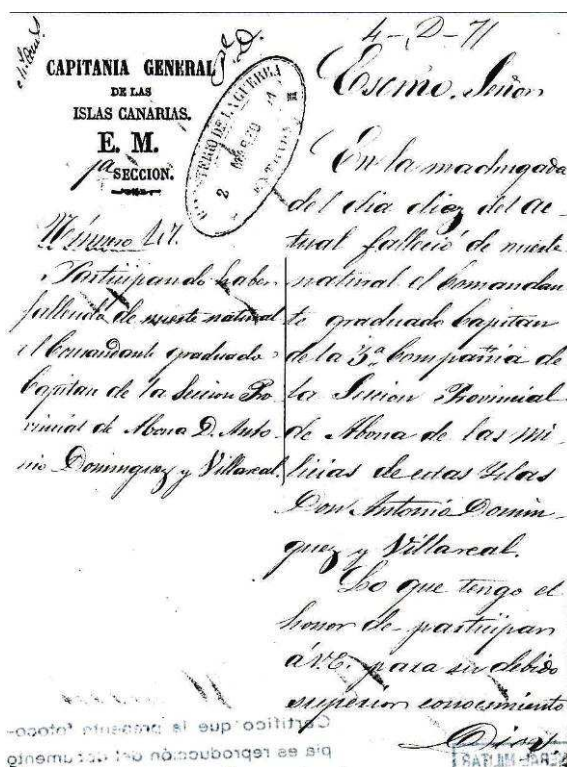 4-D-71
CAPITANIA GENERAL
DE LAS
ISLAS CANARIAS.
E. M.
1ª SECCION.
MINISTERIO DE LA GUERRA
2 MAR
ENTRADA
Número 217.
Participando haber
fallecido de muerte natural
el Comandante graduado
Capitan de la Seccion Pro-
vincial de Abona D. Anto-
nio Dominguez y Villareal.
Escmo. Señor
En la madrugada
del dia diez del ac-
tual falleció de muerte
natural el Comandan
te graduado Capitan
de la 3ª Compañia de
la Seccion Provincial
de Abona de las mi-
licias de estas Yslas
Don Antonio Domin-
guez y Villareal.
Lo que tengo el
honor de participar
á V.E. para su debido
superior conocimiento
Dios
Certifico que la presente fotoco-
pia es reproducción del documento
MILITAR